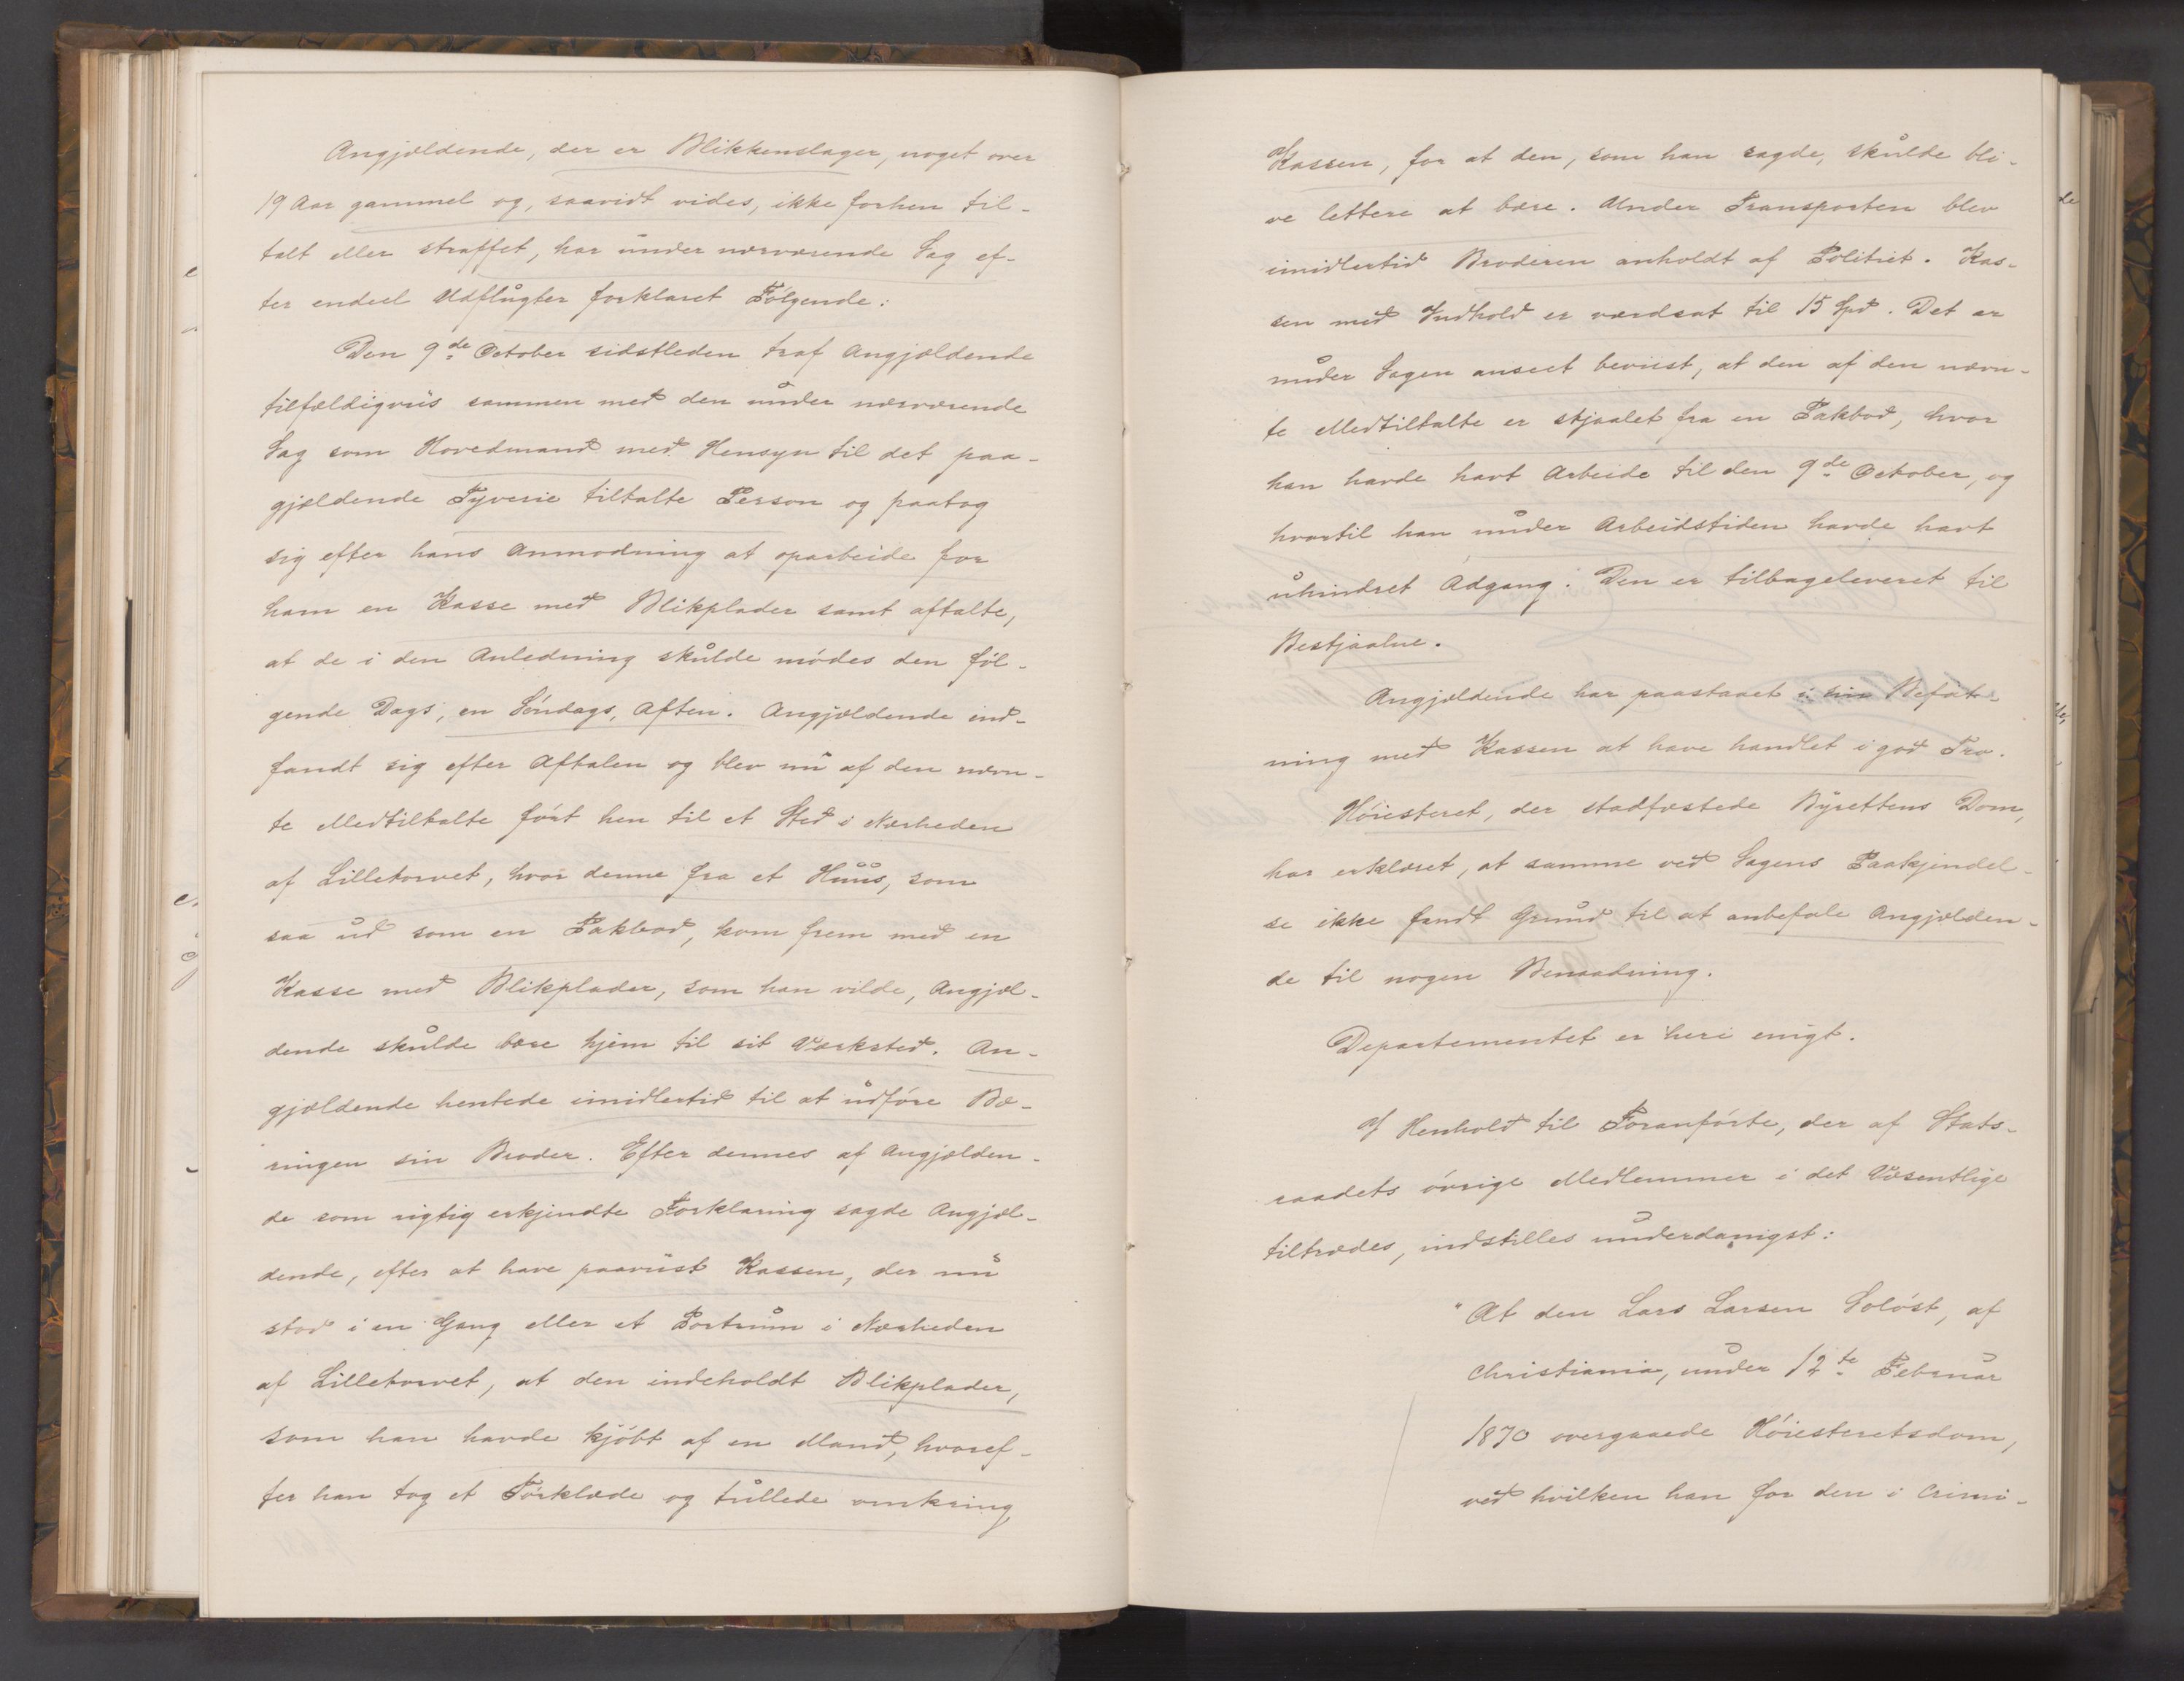 Angjældende, der er Blikkenslager, noget over
19 Aar gammel og, saavidt vides, ikke forhen til-
talt eller straffet, har under nærværende Sag ef-
ter endeel Udflugter forklaret Følgende:
Den 9de October sidstleden traf Angjældende
tilfældigviis sammen med den under nærværende
Sag som Hovedmand med Hensyn til det paa-
gjældende Tyverie tiltalte Person og paatog
sig efter hans Anmodning at oparbeide for
ham en Kasse med Blikplader samt aftalte,
at de i den Anledning skulde mødes den føl-
gende Dags, en Søndags, Aften. Angjældende ind-
fandt sig efter Aftalen og blev nu af den nævn-
te Medtiltalte ført hen til et Sted i Nærheden
af Lilletorvet, hvor denne fra et Huus, som
saa ud som en Pakbod, kom frem med en
Kasse med Blikplader, som han vilde, Angjæl-
dende skulde bære hjem til sit Værksted. An-
gjældende hentede imidlertid til at udføre Bæ-
ringen sin Broder. Efter dennes af Angjælden-
de som rigtig erkjendte Forklaring sagde Angjæl-
dende, efter at have paaviist Kassen, der nu
stod i en Gang eller et Portrum i Nærheden
af Lilletorvet, at den indeholdt Blikplader,
som han havde kjøbt af en Mand, hvoref-
ter han tog et Forklæde og tullede omkring
Kassen, for at den, som han sagde, skulde bli-
ve lettere at bære. Under Transporten blev
imidlertid Broderen anholdt af Politiet. Kas-
sen med Indhold er værdsat til 15 Spd. Det er
under Sagen anseet beviist, at den af den nævn-
te Medtiltalte er stjaalet fra en Pakbod, hvor
han havde havt Arbeide til den 9de October, og
hvortil han under Arbeidstiden havde havt
uhindret Adgang. Den er tilbageleveret til
Bestjaalne.
Angjældende har paastaaet i sin Befat-
ning med Kassen at have handlet i god Tro.
Høiesteret, der stadfæstede Byrettens Dom,
har erklæret, at samme ved Sagens Paakjendel-
se ikke fandt Grund til at anbefale Angjælden-
de til nogen Benaadning.
Departementet er heri enigt.
I Henhold til Foranførte, der af Stats-
raadets øvrige Medlemmer i det Væsentlige
tiltrædes, indstilles underdanigst:
"At den Lars Larsen Soløst, af
Christiania, under 12te Februar
1870 overgaaede Høiesteretsdom,
ved hvilken han for den i Crimi-